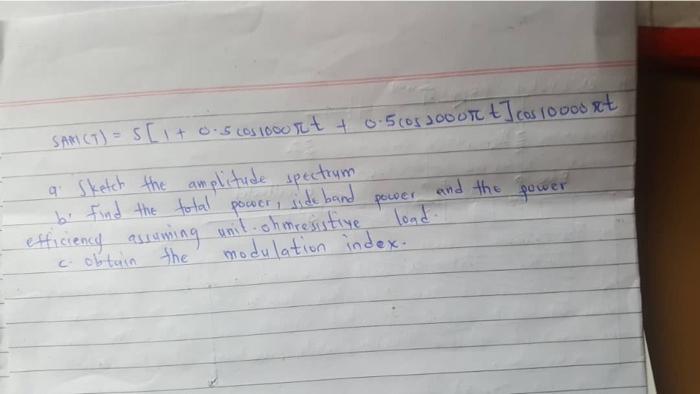 SAM(T) = 5[1 + 0.5 cos 1000 πt + 0.5 cos 2000π t] cos 10000 πt
a. Sketch the amplitude spectrum
b. Find the total power, side band power and the power
efficiency assuming unit-ohmresistive load.
c. obtain the modulation index.